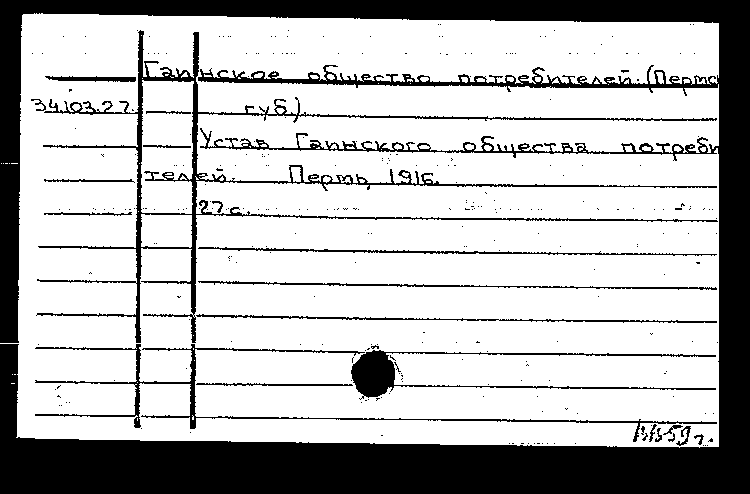 Гаинское общество потребителей. (Пермс
34.103.27. губ.).
Устав Гаинского общества потреби
телей. Пермь, 1916.
27 с.